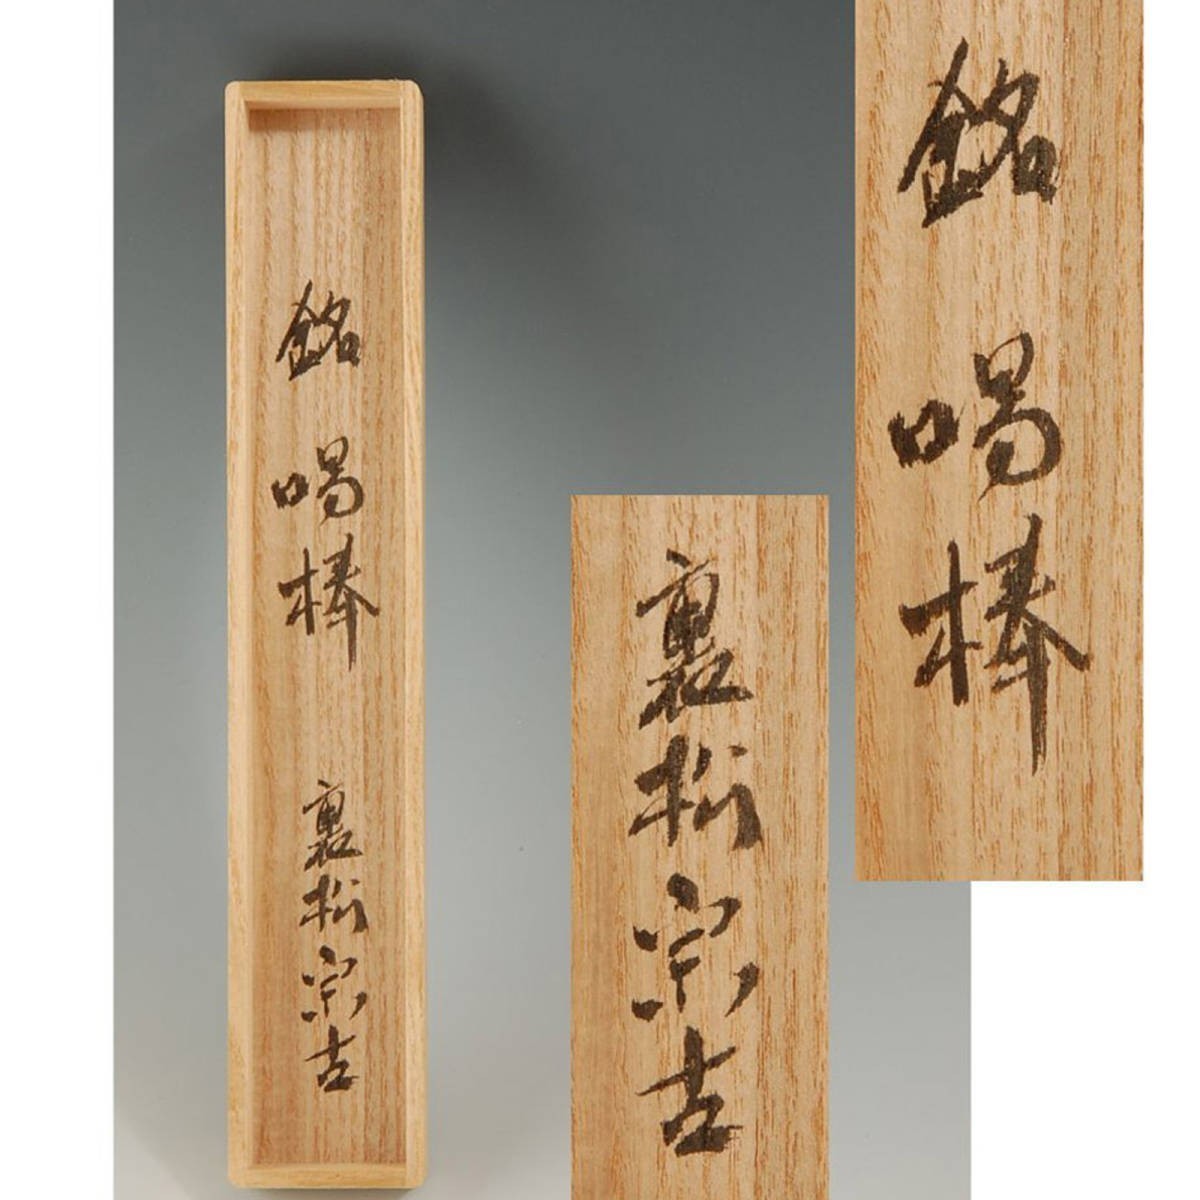 銘
喝棒
裏松宗吉
銘
喝棒
裏松宗吉